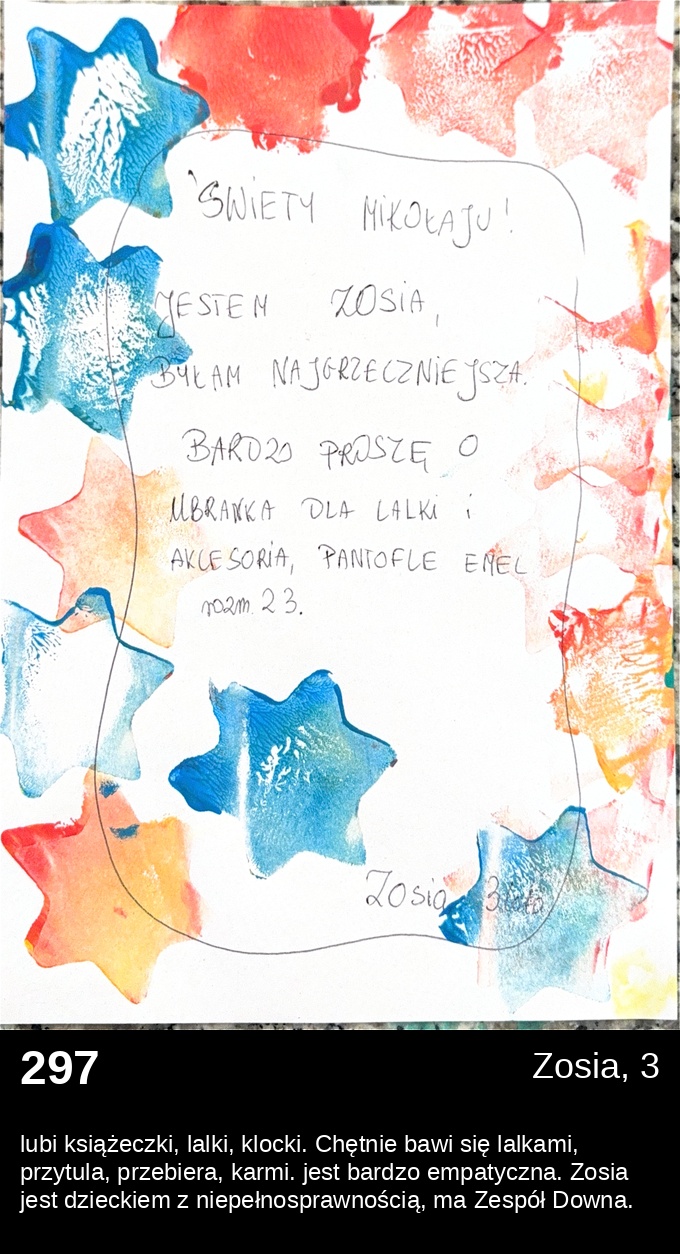 ŚWIETY MIKOŁAJU!
JESTEM ZOSIA,
BYŁAM NAJGRZECZNIEJSZA.
BARDZO PROSZĘ O
UBRANKA DLA LALKI i
AKCESORIA, PANTOFLE EMEL
rozm. 23.
Zosia 3 lata
297
Zosia, 3
lubi książeczki, lalki, klocki. Chętnie bawi się lalkami,
przytula, przebiera, karmi. jest bardzo empatyczna. Zosia
jest dzieckiem z niepełnosprawnością, ma Zespół Downa.